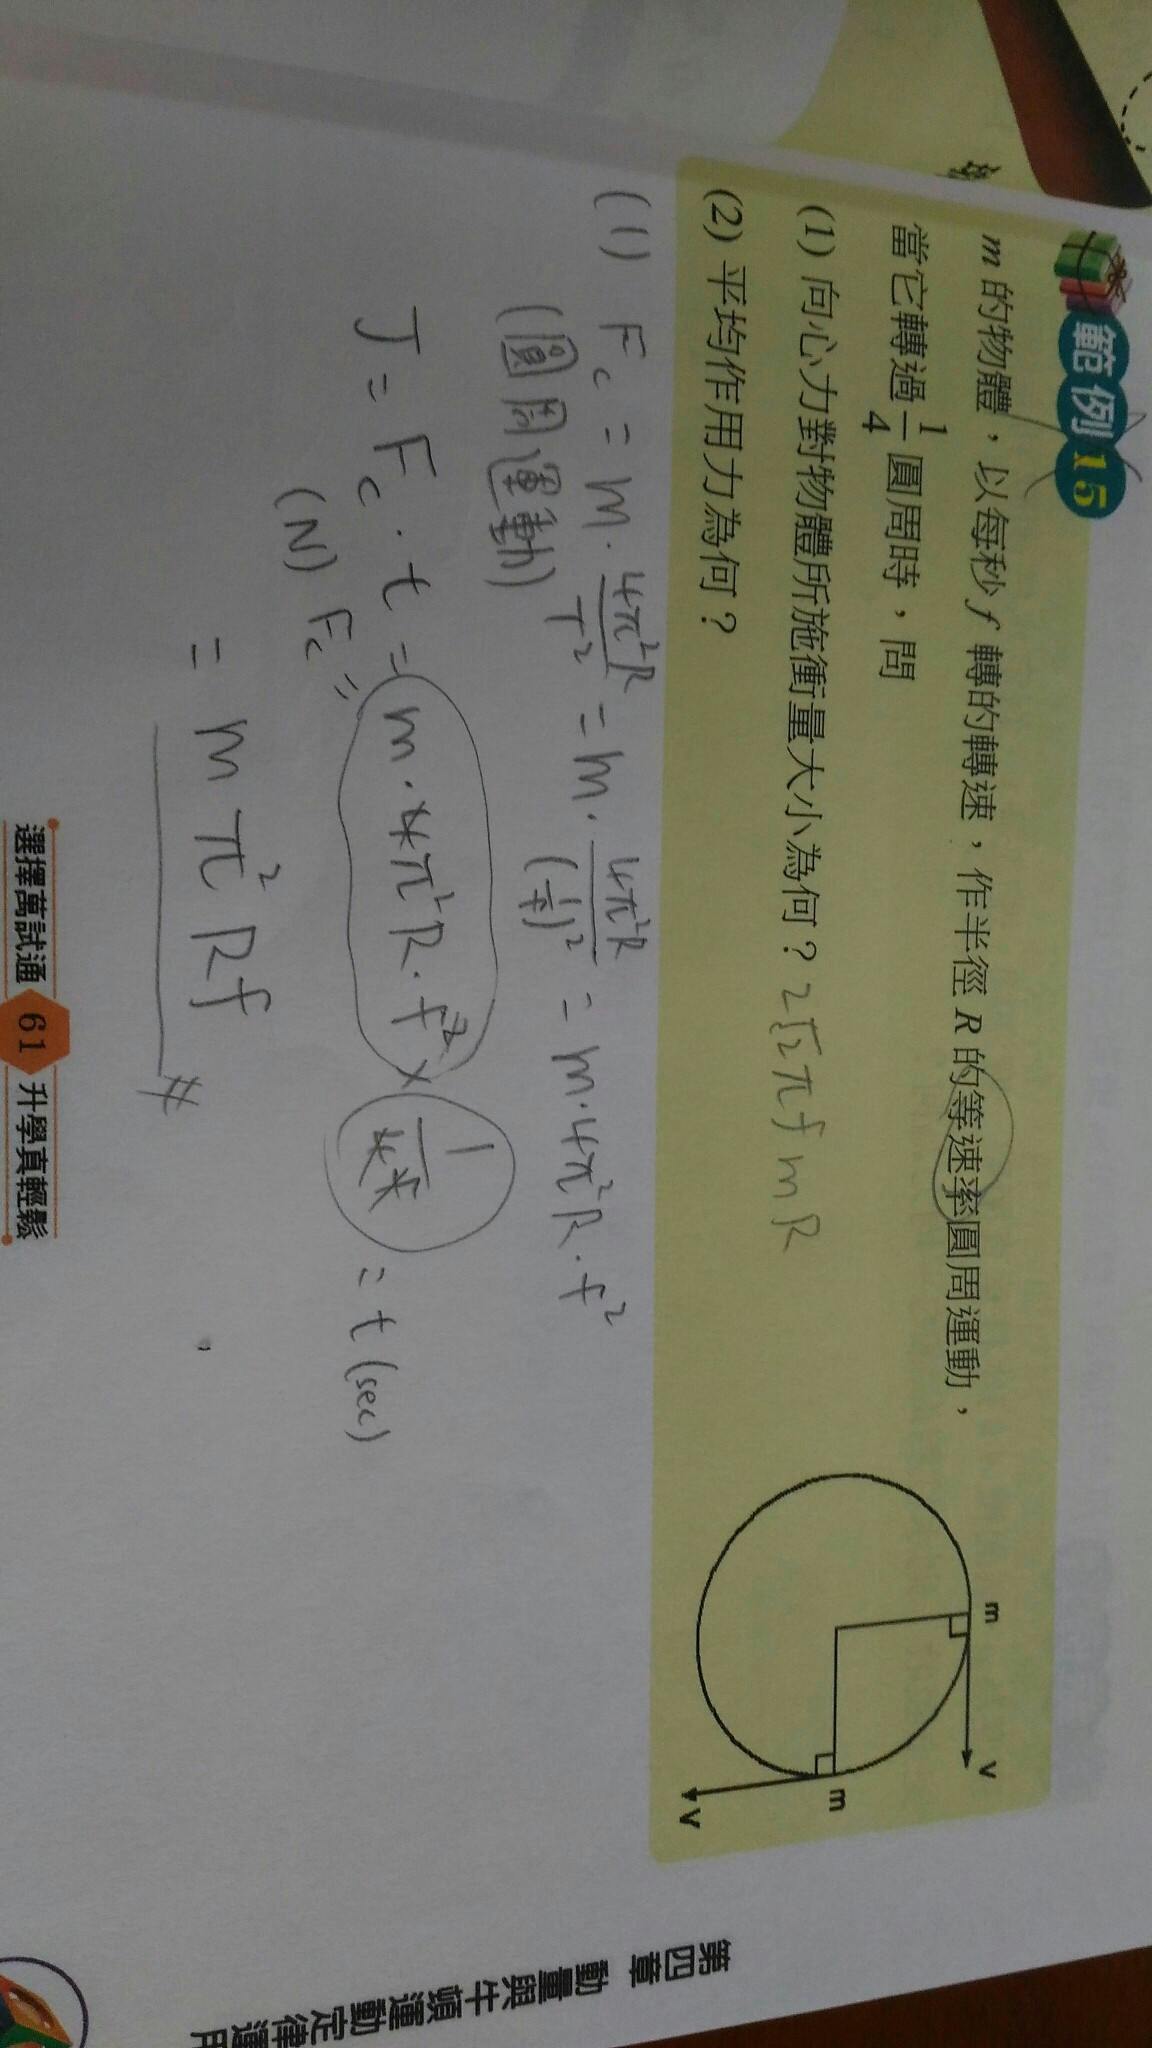 範例15
m 的物體,以每秒 f 轉的轉速,作半徑 R 的等速率圓周運動,
當它轉過 1/4 圓周時,問
(1) 向心力對物體所施衝量大小為何? 2√2πfmR
(2) 平均作用力為何?
m
v
m
v
(1) Fc = m · 4π²R/T² = m · 4π²R/(1/f)² = m · 4π²R · f²
(圓周運動)
J = Fc · t = m · 4π²R · f² × 1/4f = t (sec)
(N) Fc =
= mπ²Rf #
選擇萬試通 61 升學真輕鬆
第四章 動量與牛頓運動定律運用